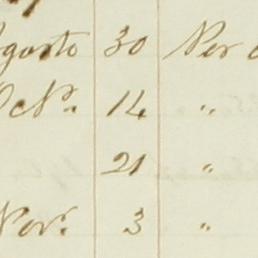 Agosto 30 Per
Octe. 14 "
21 "
Nov. 3 "